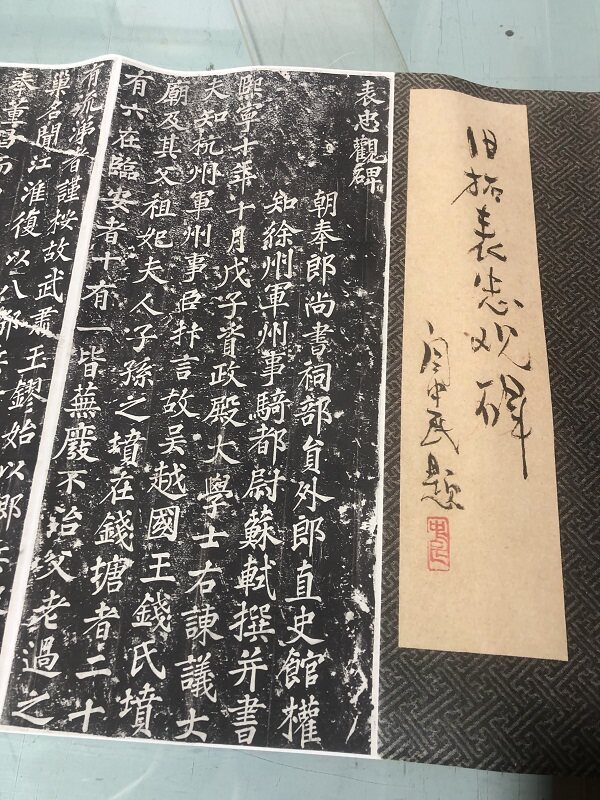 旧拓表忠观碑
中民题
表忠觀碑
朝奉郎尚書祠部員外郎直史館權
知徐州軍州事騎都尉蘇軾撰并書
熙寧十年十月戊子資政殿大學士右諫議大
夫知杭州軍州事臣抃言故吳越國王錢氏墳
廟及其父祖妃夫人子孫之墳在錢塘者二十
有六在臨安者十有一皆蕪廢不治父老過之
有流涕者謹桉故武肅王鏐始以鄉兵
巢名聞江淮復以八都兵
奉董昌而